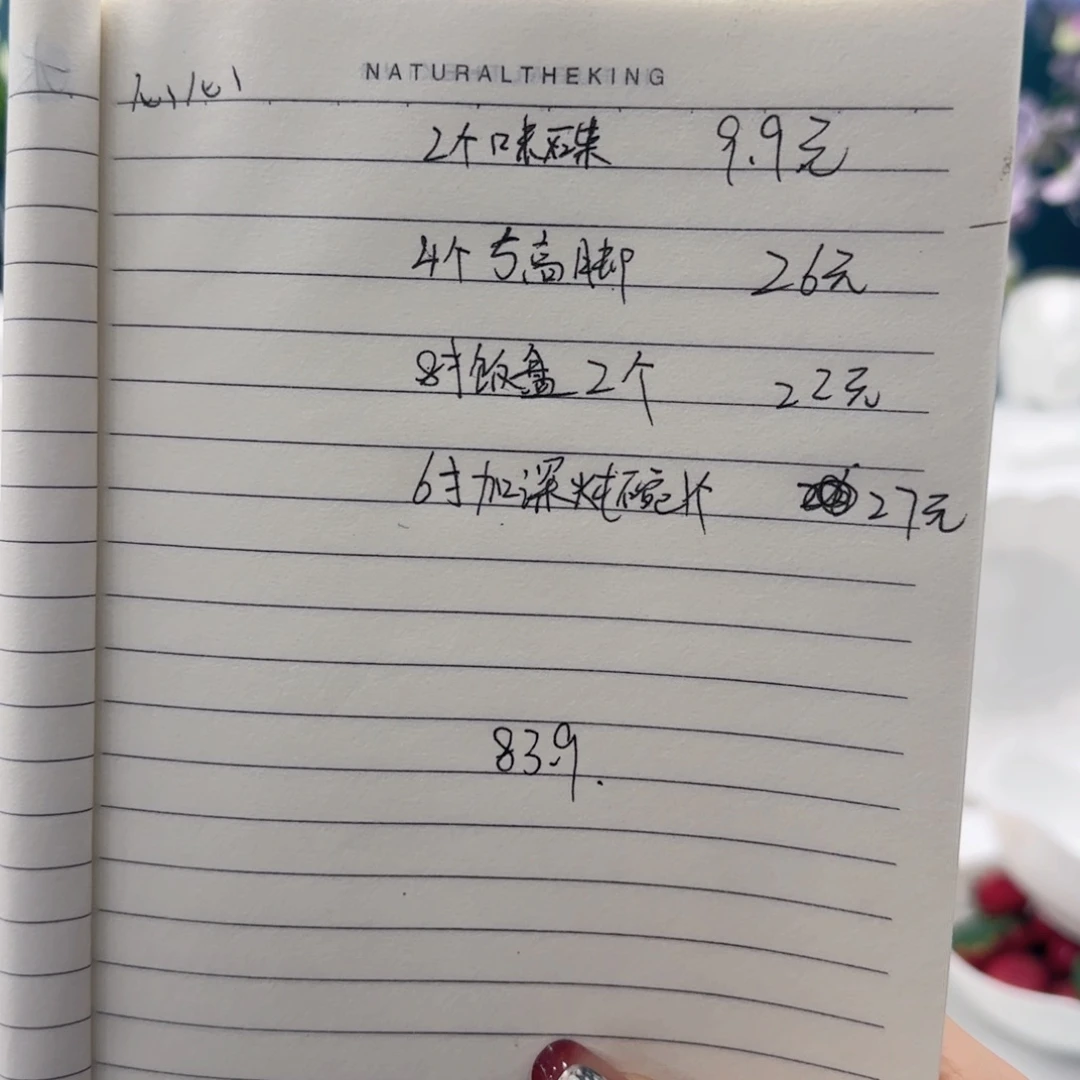 NATURALTHEKING
2个味碟 9.9元
4个5高脚 26元
8寸饭盘2个 22元
6寸加深炖碗1个 27元
83.9.